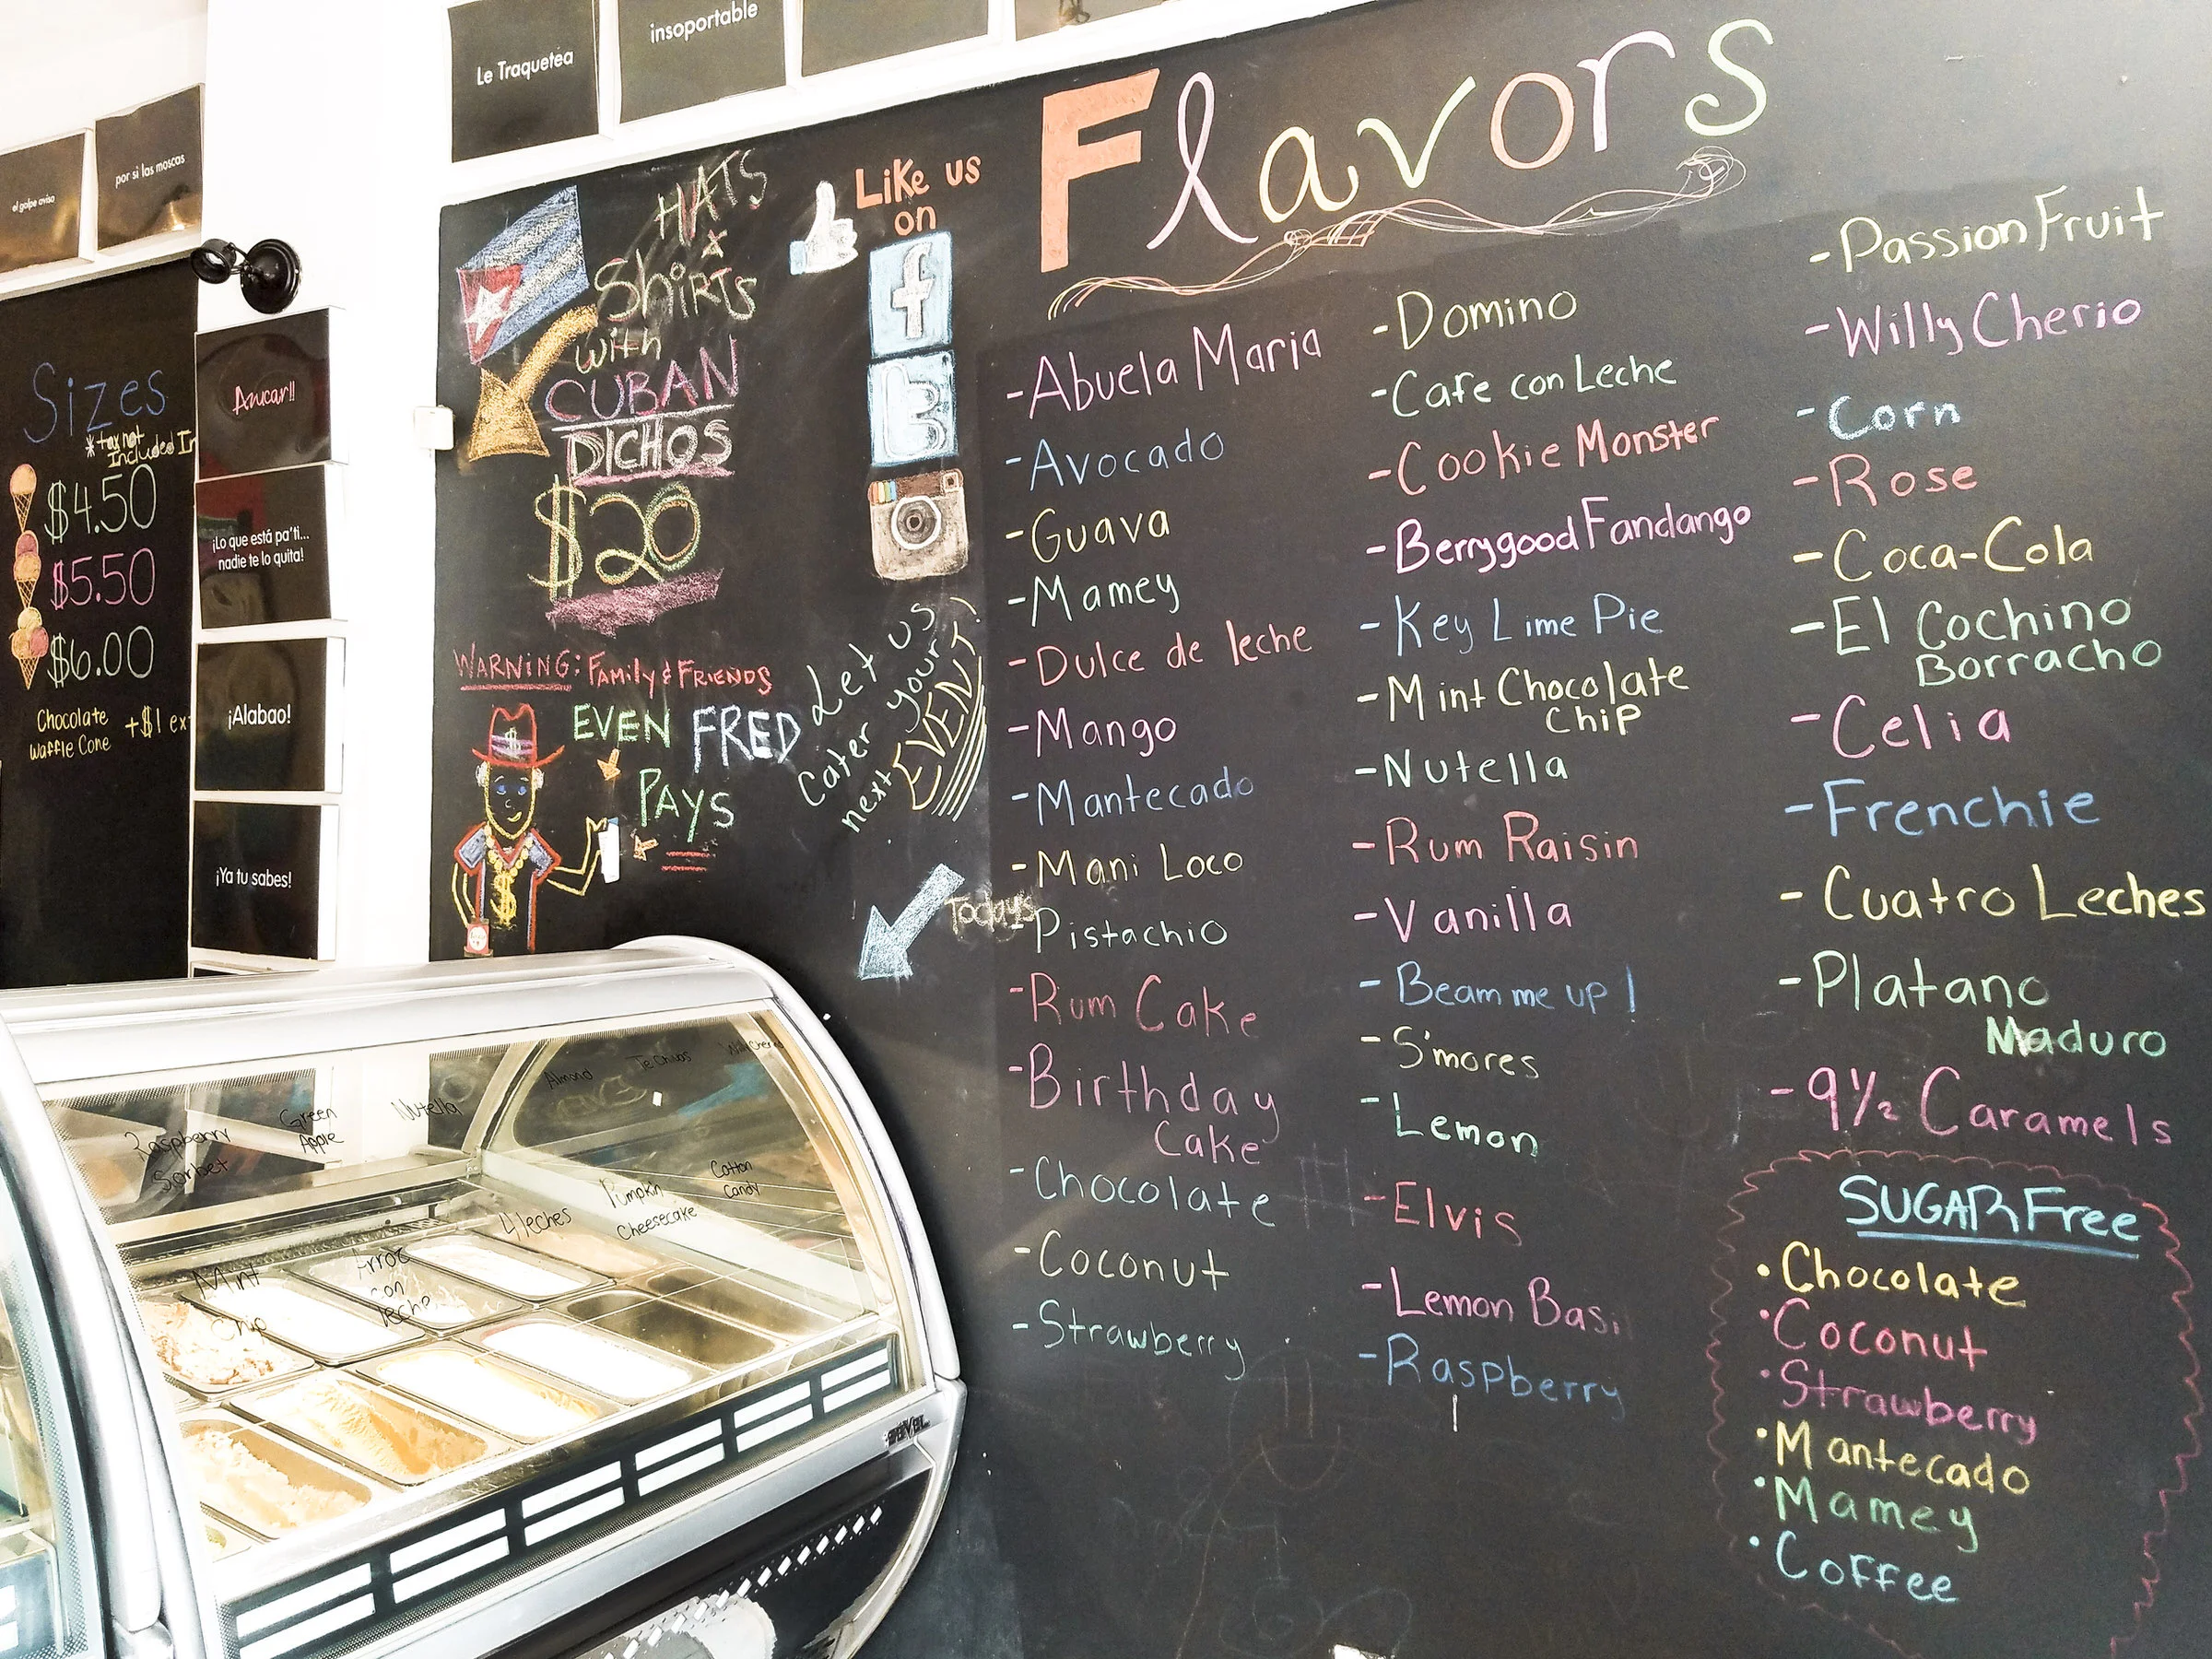 Le Traquetéa
insoportable
el golpe avisa
por si las moscas
Sizes
*tax not
Included In
$4.50
$5.50
$6.00
Chocolate
Waffle Cone
+$1
Azucar!!
¡Lo que está pa'ti...
nadie te lo quita!
¡Alabao!
¡Ya tu sabes!
HATS
&
ShiRTS
with
CUBAN
DICHOS
$20
Like us
on
f
t
WARNING: FAMILY & FRIENDS
EVEN FRED
PAYS
$
$
Let us
Cater your
next EVENT!
Todays
Flavors
-Abuela Maria
-Avocado
-Guava
-Mamey
-Dulce de leche
-Mango
-Mantecado
-Mani Loco
-Pistachio
-Rum Cake
-Birthday
Cake
-Chocolate
-Coconut
-Strawberry
-Domino
-Cafe con Leche
-Cookie Monster
-Berrygood Fandango
-Key Lime Pie
-Mint Chocolate
Chip
-Nutella
-Rum Raisin
-Vanilla
-Beam me up!
-S'mores
-Lemon
-Elvis
-Lemon Basil
-Raspberry
-Passion Fruit
-Willy Cherio
-Corn
-Rose
-Coca-Cola
-El Cochino
Borracho
-Celia
-Frenchie
-Cuatro Leches
-Platano
Maduro
-9½ Caramels
SUGAR Free
•Chocolate
•Coconut
•Strawberry
•Mantecado
•Mamey
•Coffee
Raspberry
Sorbet
Green
Apple
Nutella
Almond
Mint
Chip
Arroz
con
leche
4 leches
Pumpkin
Cheesecake
Cotton
Candy